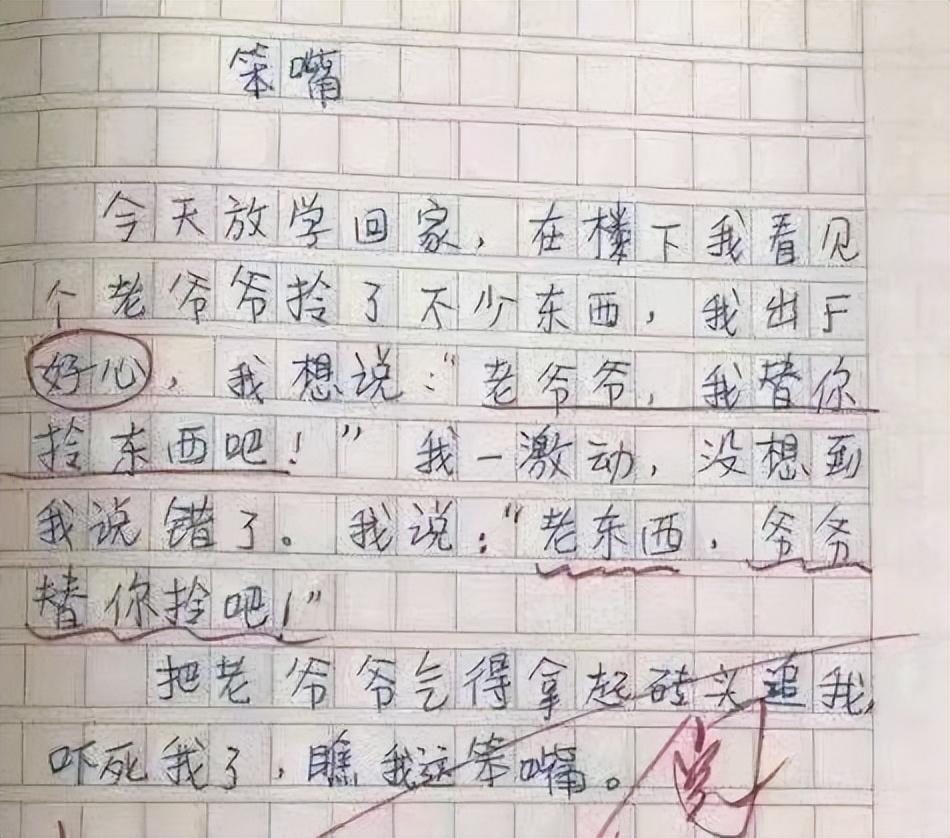 笨嘴
今天放学回家，在楼下我看见
个老爷爷拎了不少东西，我出于
好心，我想说：“老爷爷，我替你
拎东西吧！”我一激动，没想到
我说错了。我说：“老东西，爷爷
替你拎吧！”
把老爷爷气得拿起砖头追我，
吓死我了，瞧我这笨嘴。